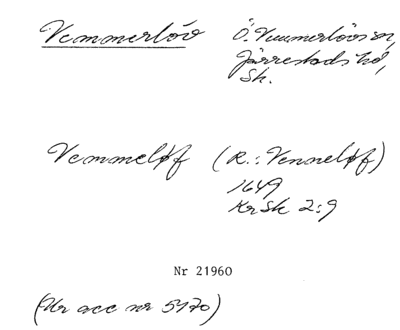 Vemmerlöv Ö. Vemmerlövs sn,
Järrestads hd,
Sk.
Vemmeløf (R.: Vemeløf)
1649
Kr Sk 2:9
Nr 21960
(Ur acc nr 5170)